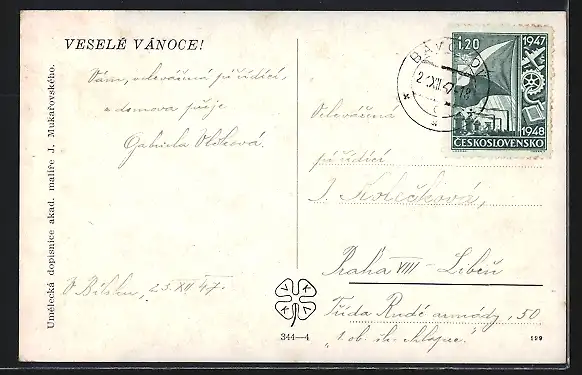 VESELÉ VÁNOCE!
Vám, velevážená pí řídící,
z domova přeje
Gabriela
V 23. XII 47.
Umělecká dopisnice akad. malíře J. Mukařovského.
344—4
1,20
1947
1948
ČESKOSLOVENSKO
Velevážená
pí řídící
J. Kolečková,
Praha VIII - Libeň
Třída Rudé armády, 50
"1. ob. šk. chlapec."
199